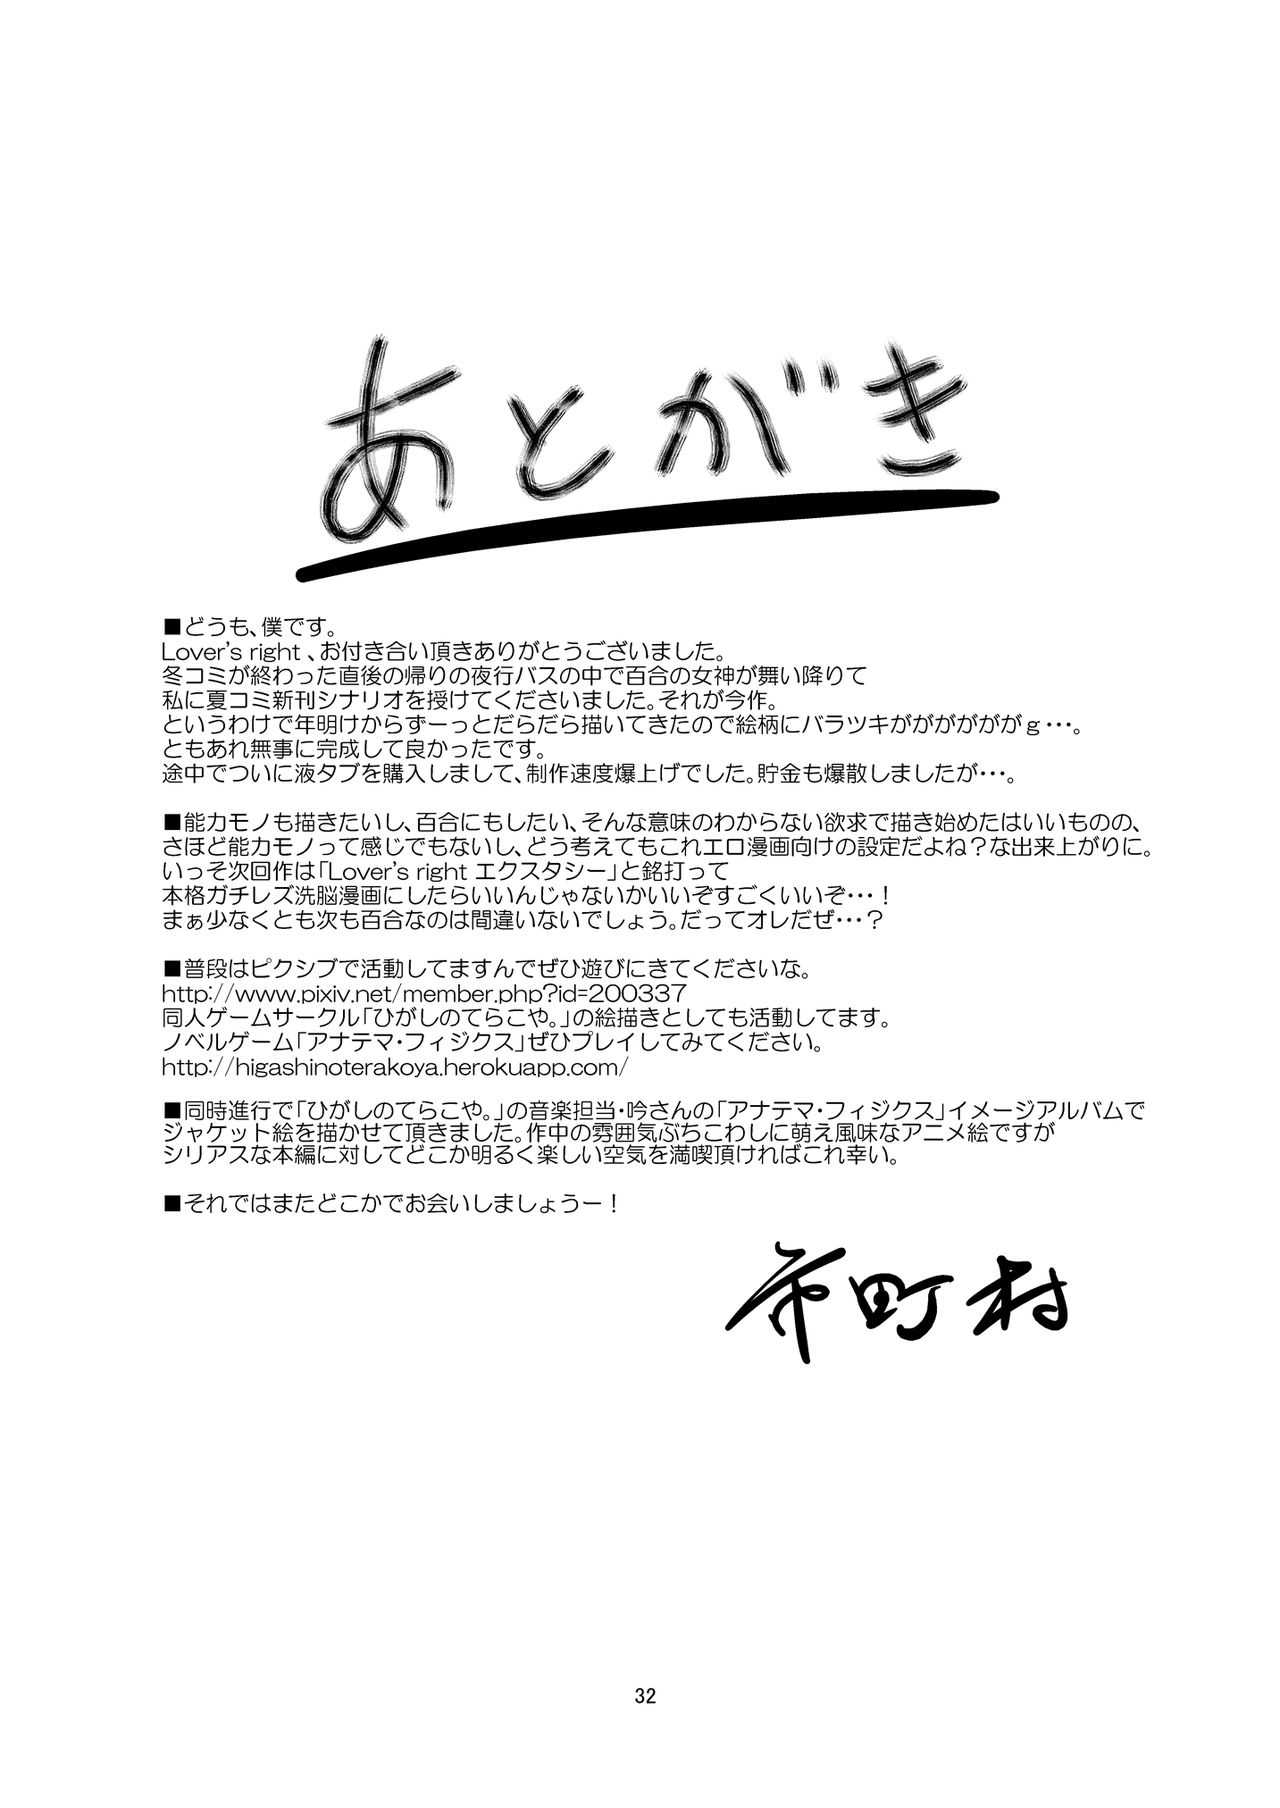 あとがき
■どうも、僕です。
Lover's right 、お付き合い頂きありがとうございました。
冬コミが終わった直後の帰りの夜行バスの中で百合の女神が舞い降りて
私に夏コミ新刊シナリオを授けてくださいました。それが今作。
というわけで年明けからずーっとだらだら描いてきたので絵柄にバラツキがががががｇ・・・。
ともあれ無事に完成して良かったです。
途中でついに液タブを購入しまして、制作速度爆上げでした。貯金も爆散しましたが・・・。
■能力モノも描きたいし、百合にもしたい、そんな意味のわからない欲求で描き始めたはいいものの、
さほど能力モノって感じでもないし、どう考えてもこれエロ漫画向けの設定だよね？な出来上がりに。
いっそ次回作は「Lover's right エクスタシー」と銘打って
本格ガチレズ洗脳漫画にしたらいいんじゃないかいいぞすごくいいぞ・・・！
まぁ少なくとも次も百合なのは間違いないでしょう。だってオレだぜ・・・？
■普段はピクシブで活動してますんでぜひ遊びにきてくださいな。
http://www.pixiv.net/member.php?id=200337
同人ゲームサークル「ひがしのてらこや。」の絵描きとしても活動してます。
ノベルゲーム「アナテマ・フィジクス」ぜひプレイしてみてください。
http://higashinoterakoya.herokuapp.com/
■同時進行で「ひがしのてらこや。」の音楽担当・吟さんの「アナテマ・フィジクス」イメージアルバムで
ジャケット絵を描かせて頂きました。作中の雰囲気ぶちこわしに萌え風味なアニメ絵ですが
シリアスな本編に対してどこか明るく楽しい空気を満喫頂ければこれ幸い。
■それではまたどこかでお会いしましょうー！
市町村
32